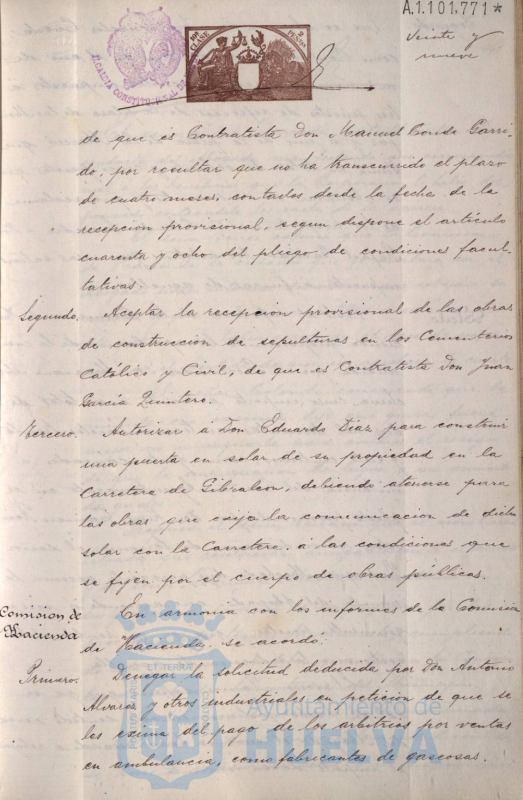 A.1.101.771*
Veinte y
nueve
10ª CLASE
2 PESETAS
de que es Contratista Don Manuel Conde Garri-
do, por resultar que no ha transcurrido el plazo
de cuatro meses, contados desde la fecha de la
recepcion provisional, segun dispone el artículo
cuarenta y ocho del pliego de condiciones facul-
tativas.
Segundo. Aceptar la recepcion provisional de las obras
de construccion de sepulturas en los Cementerios
Católico y Civil, de que es Contratista Don Juan
García Quintero.
Tercero. Autorizar á Don Eduardo Diaz para construir
una puerta en solar de su propiedad en la
Carretera de Gibraleon, debiendo atenerse para
las obras que exija la comunicacion de dicho
solar con la Carretera. á las condiciones que
se fijen por el cuerpo de obras públicas.
Comision de
Hacienda
En armonía con los informes de la Comision
de Hacienda, se acordó:
Primero. Denegar la solicitud deducida por Don Antonio
Alvarez y otros industriales en peticion de que se
les exima del pago de los arbitrios por ventas
en ambulancia, como fabricantes de gaseosas.
Ayuntamiento de
HUELVA